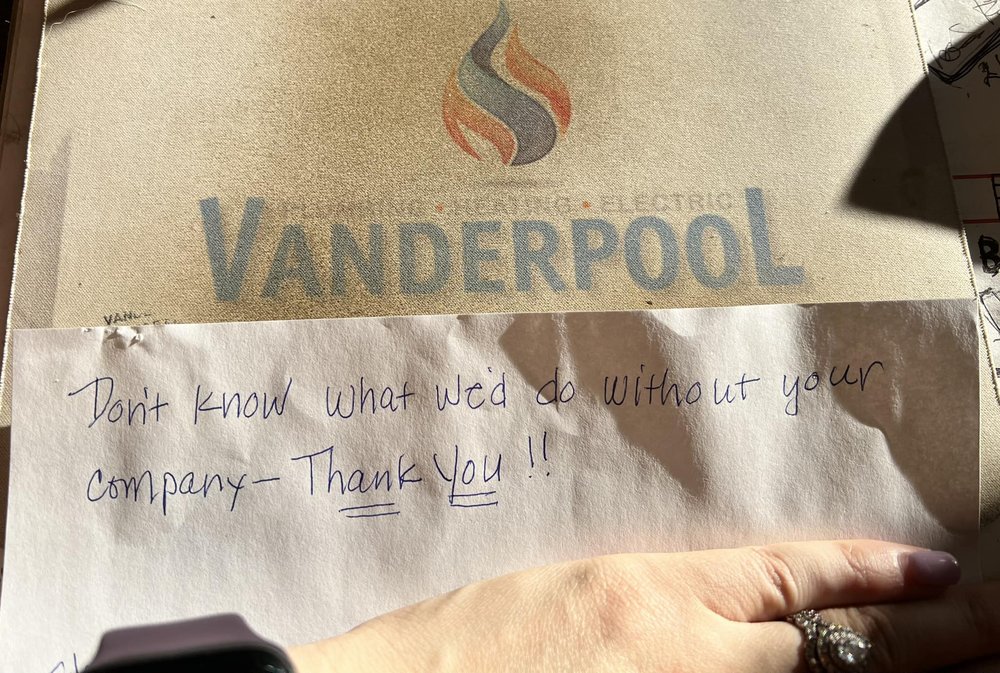 PLUMBING • HEATING • ELECTRIC
VANDERPOOL
Don't know what we'd do without your
company- Thank You !!